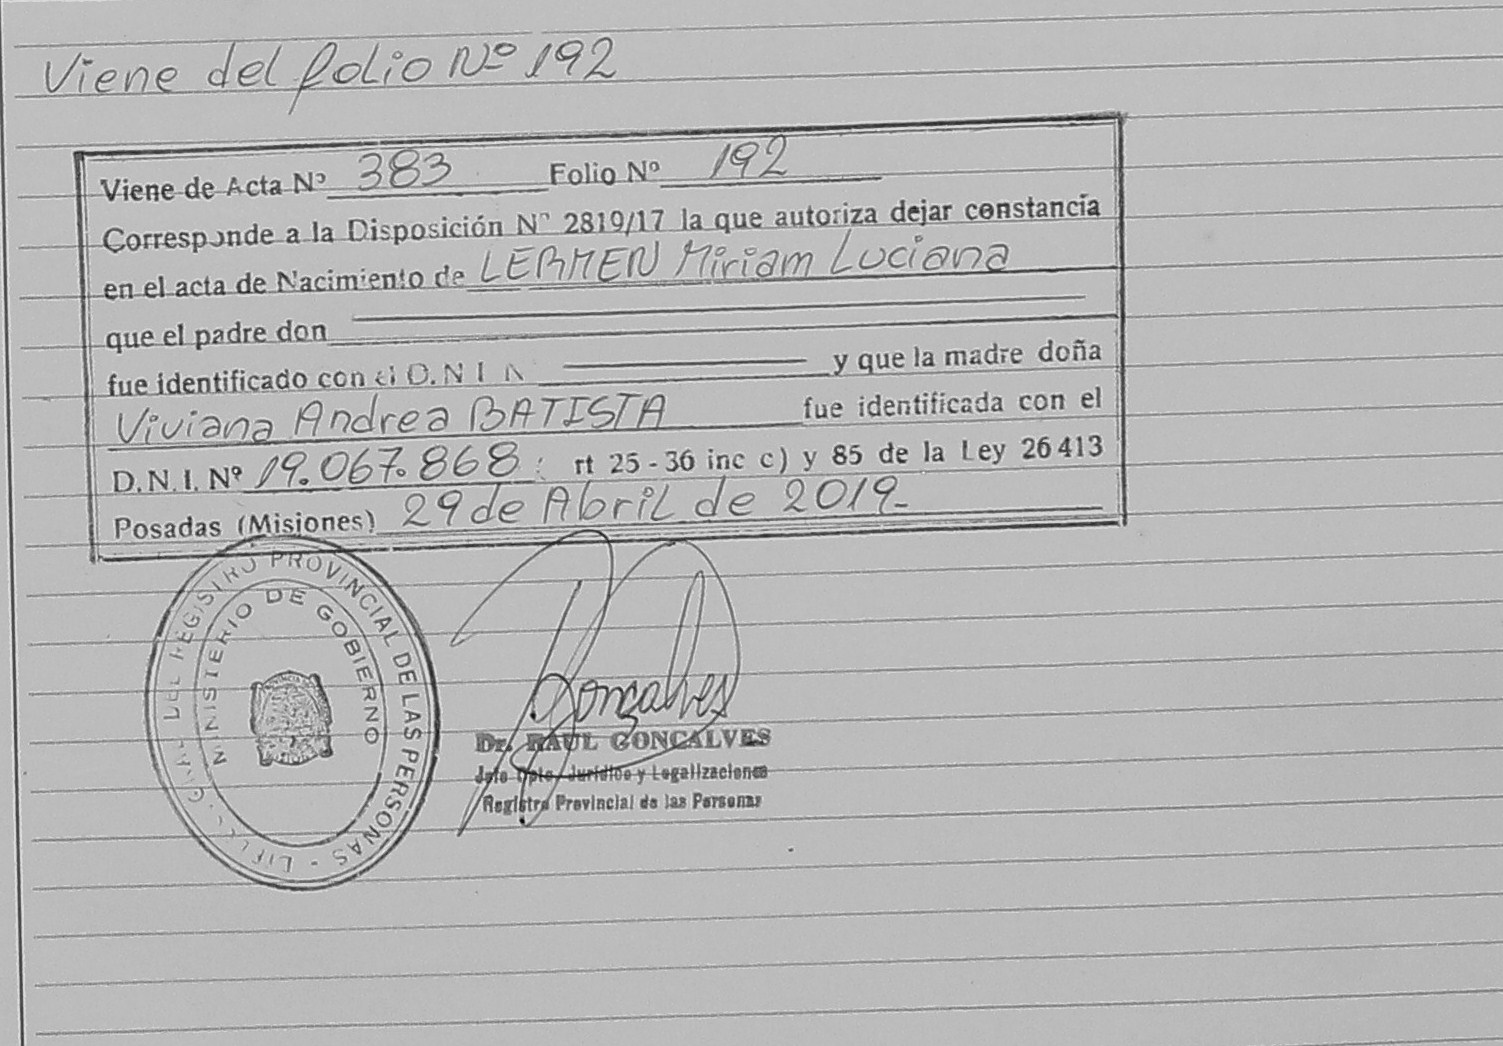 Viene del folio Nº 192
Viene de Acta Nº 383 Folio Nº 192
Corresponde a la Disposición Nº 2819/17 la que autoriza dejar constancia
en el acta de Nacimiento de LERMEN Miriam Luciana
que el padre don
fue identificado con el D.N.I. N
y que la madre doña
Viviana Andrea BATISTA fue identificada con el
D.N.I. Nº 19.067.868 : rt 25 - 36 inc c) y 85 de la Ley 26413
Posadas (Misiones) 29 de Abril de 2019-
DEL REGISTRO PROVINCIAL DE LAS PERSONAS -
MINISTERIO DE GOBIERNO
Gonçalves
Dr. RAUL GONCALVES
Jefe Dpto. Jurídico y Legalizaciones
Registro Provincial de las Personas